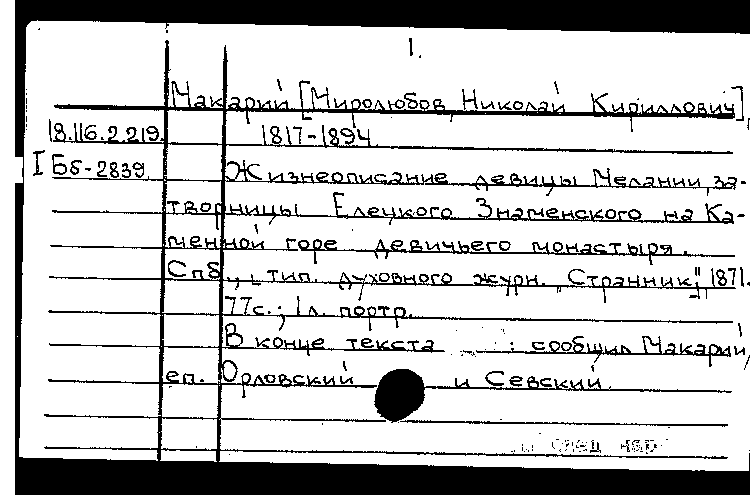 1.
Макарий [Миролюбов, Николай Кириллович],
18.116.2.219. 1817-1894
I Бб-2839 Жизнеописание девицы Мелании, за-
творницы Елецкого Знаменского на Ка-
менной горе девичьего монастыря.
Спб., тип. духовного журн. "Странник", 1871.
77с.; 1л. портр.
В конце текста : сообщил Макарий,
еп. Орловский и Севский.